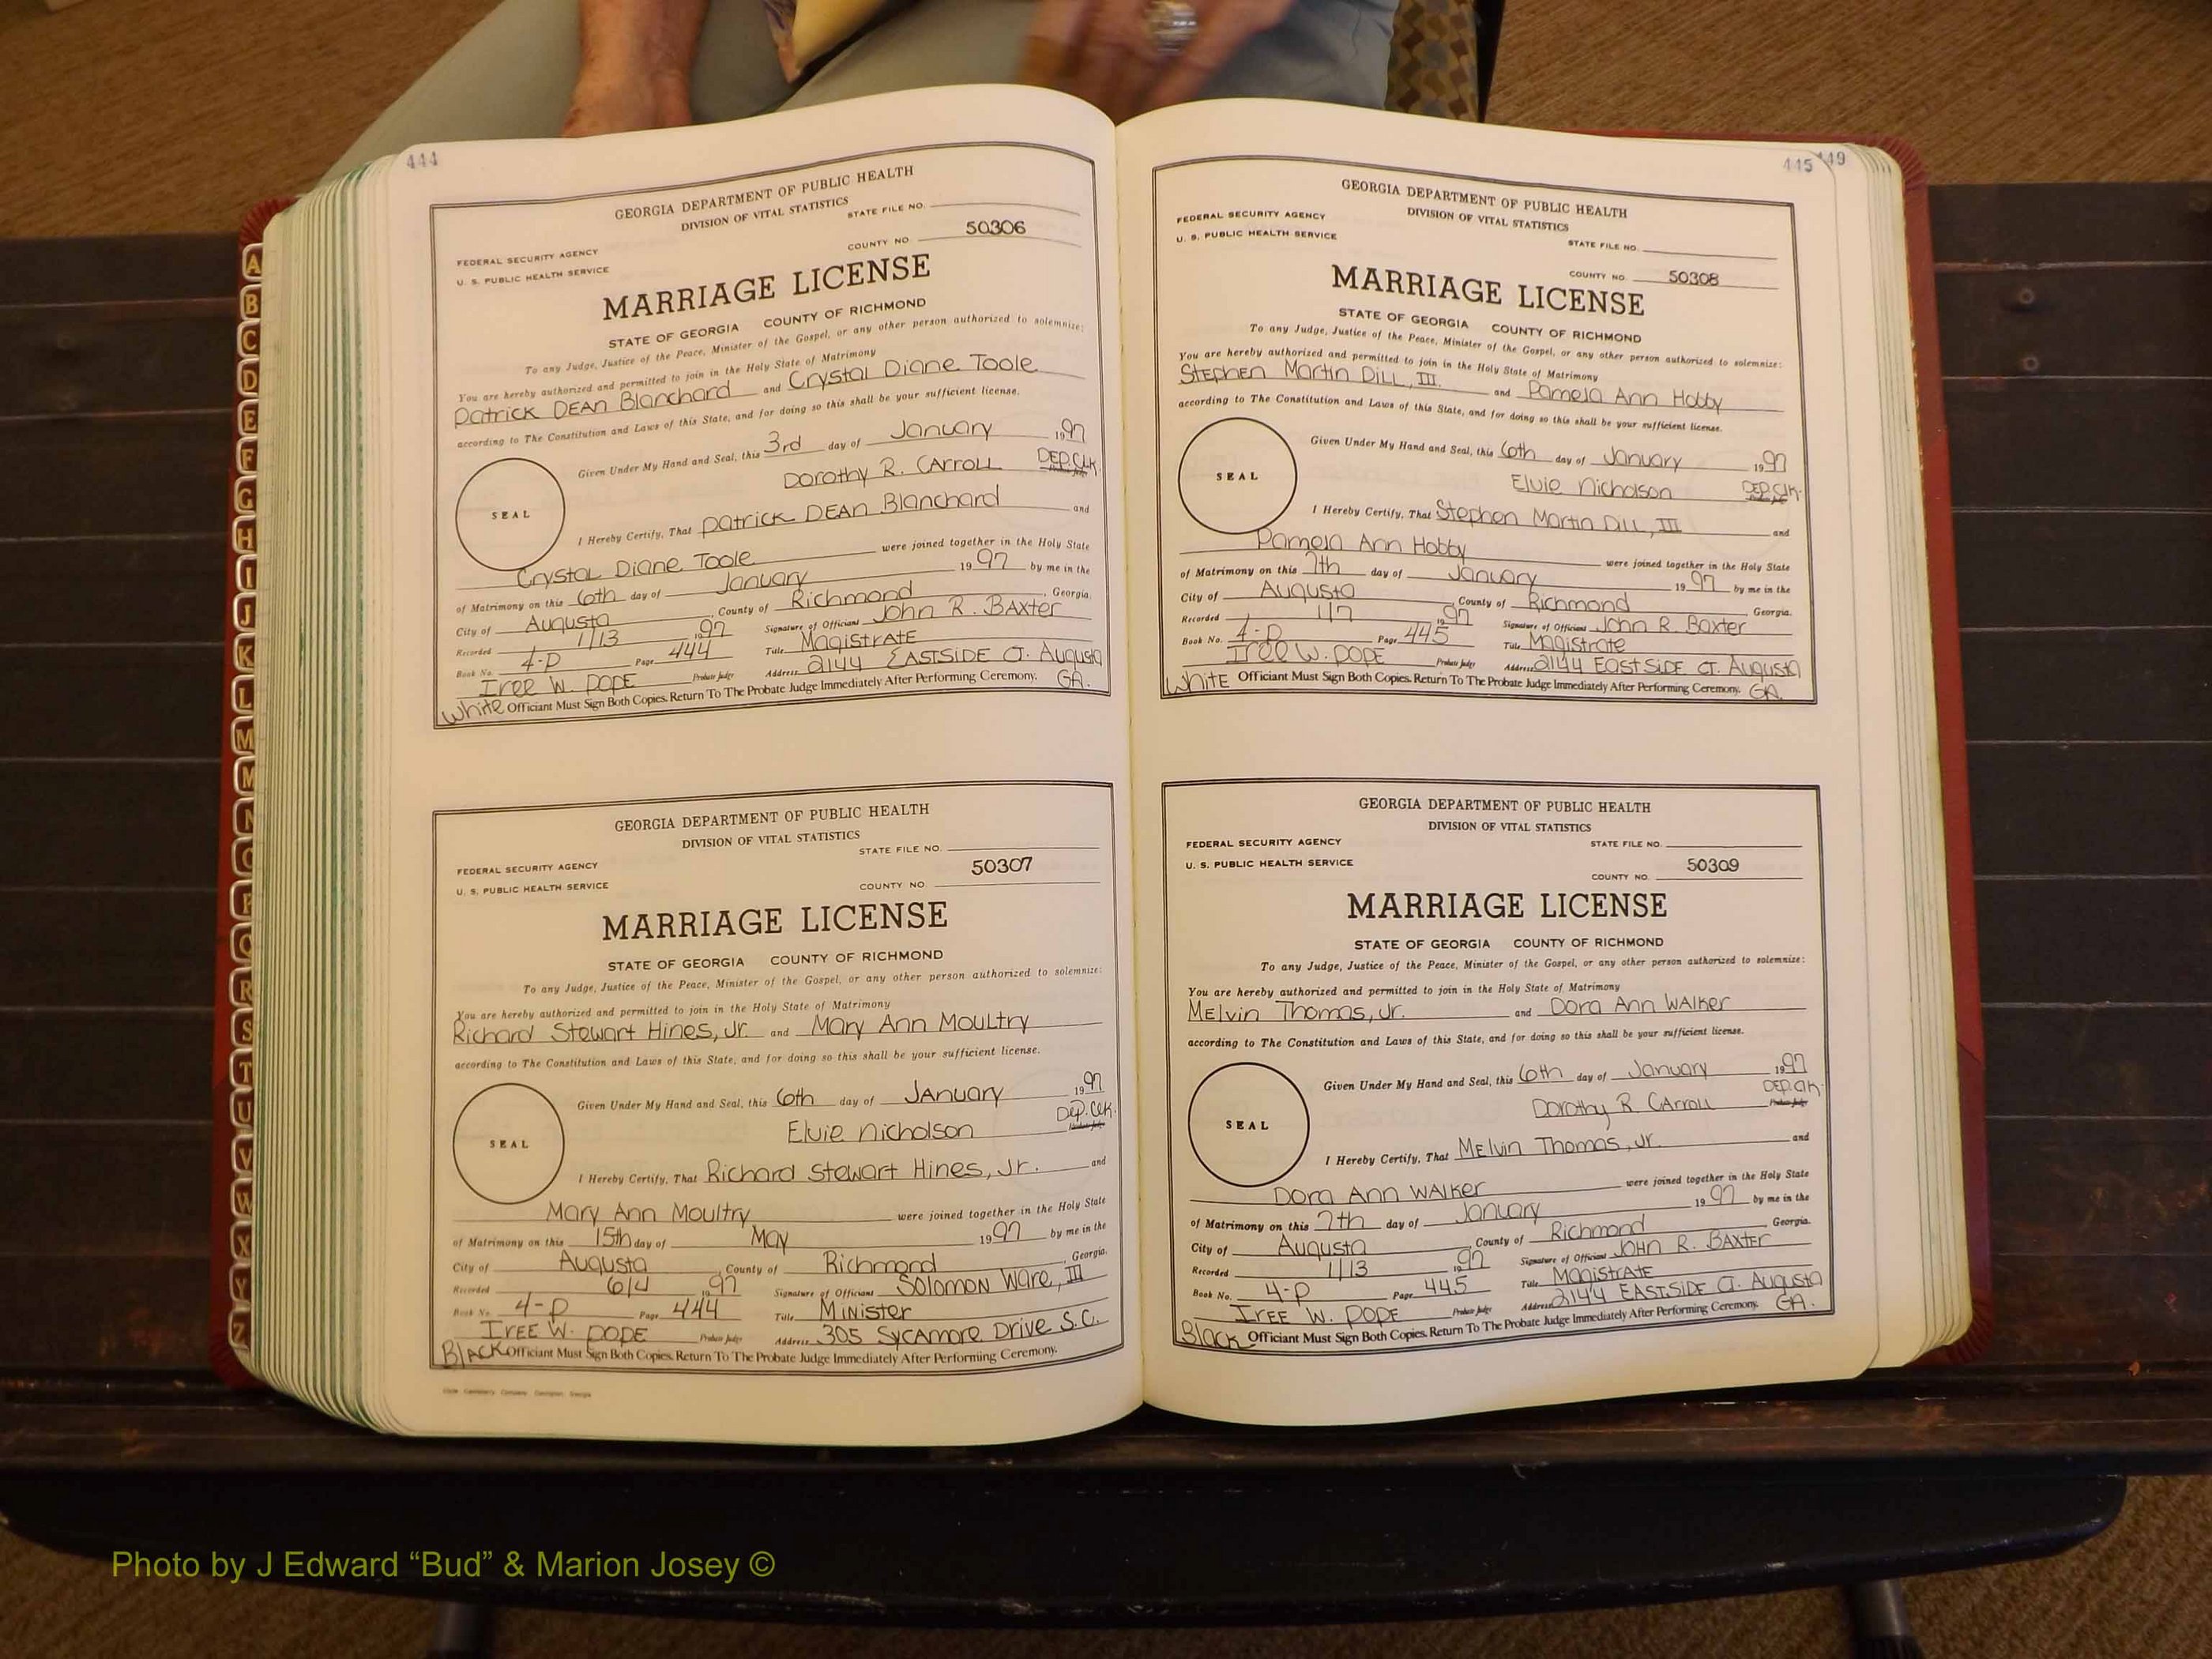 444
GEORGIA DEPARTMENT OF PUBLIC HEALTH
DIVISION OF VITAL STATISTICS
STATE FILE NO.
FEDERAL SECURITY AGENCY
U. S. PUBLIC HEALTH SERVICE
COUNTY NO. 50306
MARRIAGE LICENSE
STATE OF GEORGIA COUNTY OF RICHMOND
To any Judge, Justice of the Peace, Minister of the Gospel, or any other person authorized to solemnize:
You are hereby authorized and permitted to join in the Holy State of Matrimony
Patrick DEAn Blanchard and Crystal Diane Toole
according to The Constitution and Laws of this State, and for doing so this shall be your sufficient license.
Given Under My Hand and Seal, this 3rd day of January 1997
Dorothy R. CARROLL DEP. CLK.
SEAL
I Hereby Certify, That Patrick DEAn Blanchard and
Crystal Diane Toole were joined together in the Holy State
of Matrimony on this 6th day of January 1997 by me in the
City of Augusta County of Richmond, Georgia.
Recorded 1/13 1997 Signature of Officiant John R. BAxter
Book No. 4-P Page 444 Title MagistrAtE
Iree W. POPE Probate Judge Address 2144 EASTSIDE CT. Augusta GA.
White Officiant Must Sign Both Copies. Return To The Probate Judge Immediately After Performing Ceremony.
GEORGIA DEPARTMENT OF PUBLIC HEALTH
DIVISION OF VITAL STATISTICS
STATE FILE NO.
FEDERAL SECURITY AGENCY
U. S. PUBLIC HEALTH SERVICE
COUNTY NO. 50307
MARRIAGE LICENSE
STATE OF GEORGIA COUNTY OF RICHMOND
To any Judge, Justice of the Peace, Minister of the Gospel, or any other person authorized to solemnize:
You are hereby authorized and permitted to join in the Holy State of Matrimony
Richard Stewart Hines, Jr. and Mary Ann Moultry
according to The Constitution and Laws of this State, and for doing so this shall be your sufficient license.
Given Under My Hand and Seal, this 6th day of JAnuary 1997
Elvie nicholson Dep. Clk.
SEAL
I Hereby Certify, That Richard Stewart Hines, Jr. and
Mary Ann Moultry were joined together in the Holy State
of Matrimony on this 15th day of May 1997 by me in the
City of Augusta County of Richmond, Georgia.
Recorded 6/4 1997 Signature of Officiant Solomon Ware, III
Book No. 4-P Page 444 Title Minister
IREE W. POPE Probate Judge Address 305 Sycamore Drive S.C.
BlACK Officiant Must Sign Both Copies. Return To The Probate Judge Immediately After Performing Ceremony.
445 449
GEORGIA DEPARTMENT OF PUBLIC HEALTH
DIVISION OF VITAL STATISTICS
FEDERAL SECURITY AGENCY
U. S. PUBLIC HEALTH SERVICE
STATE FILE NO.
COUNTY NO. 50308
MARRIAGE LICENSE
STATE OF GEORGIA COUNTY OF RICHMOND
To any Judge, Justice of the Peace, Minister of the Gospel, or any other person authorized to solemnize:
You are hereby authorized and permitted to join in the Holy State of Matrimony
Stephen Martin Dill, III. and Pamela Ann Hobby
according to The Constitution and Laws of this State, and for doing so this shall be your sufficient license.
Given Under My Hand and Seal, this 6th day of January 1997
Elvie Nicholson DEP. Clk.
SEAL
I Hereby Certify, That Stephen Martin Dill, III and
Pamela Ann Hobby were joined together in the Holy State
of Matrimony on this 7th day of January 1997 by me in the
City of Augusta County of Richmond Georgia.
Recorded 1/7 1997 Signature of Officiant John R. Baxter
Book No. 4-P Page 445 Title Magistrate
Iree W. POPE Probate Judge Address 2144 EastSiDE CT. Augusta GA.
White Officiant Must Sign Both Copies. Return To The Probate Judge Immediately After Performing Ceremony.
GEORGIA DEPARTMENT OF PUBLIC HEALTH
DIVISION OF VITAL STATISTICS
FEDERAL SECURITY AGENCY
STATE FILE NO.
U. S. PUBLIC HEALTH SERVICE
COUNTY NO. 50309
MARRIAGE LICENSE
STATE OF GEORGIA COUNTY OF RICHMOND
To any Judge, Justice of the Peace, Minister of the Gospel, or any other person authorized to solemnize:
You are hereby authorized and permitted to join in the Holy State of Matrimony
MElvin Thomas, Jr. and Dora Ann WAlker
according to The Constitution and Laws of this State, and for doing so this shall be your sufficient license.
Given Under My Hand and Seal, this 6th day of January 1997
Dorothy R. CArroll DEP. Clk.
SEAL
I Hereby Certify, That MElvin Thomas, Jr. and
Dora Ann WAlker were joined together in the Holy State
of Matrimony on this 7th day of January 1997 by me in the
City of Augusta County of Richmond, Georgia.
Recorded 1/13 1997 Signature of Officiant JOHN R. BAxter
Book No. 4-P Page 445 Title MagistrAtE
IREE W. POPE Probate Judge Address 2144 EASTSIDE CT. Augusta GA.
Black Officiant Must Sign Both Copies. Return To The Probate Judge Immediately After Performing Ceremony.
A
B
C
D
E
F
G
H
I
J
K
L
M
M
N
O
P
Q
R
S
T
U
V
W
X
Y
Z
Photo by J Edward “Bud” & Marion Josey ©